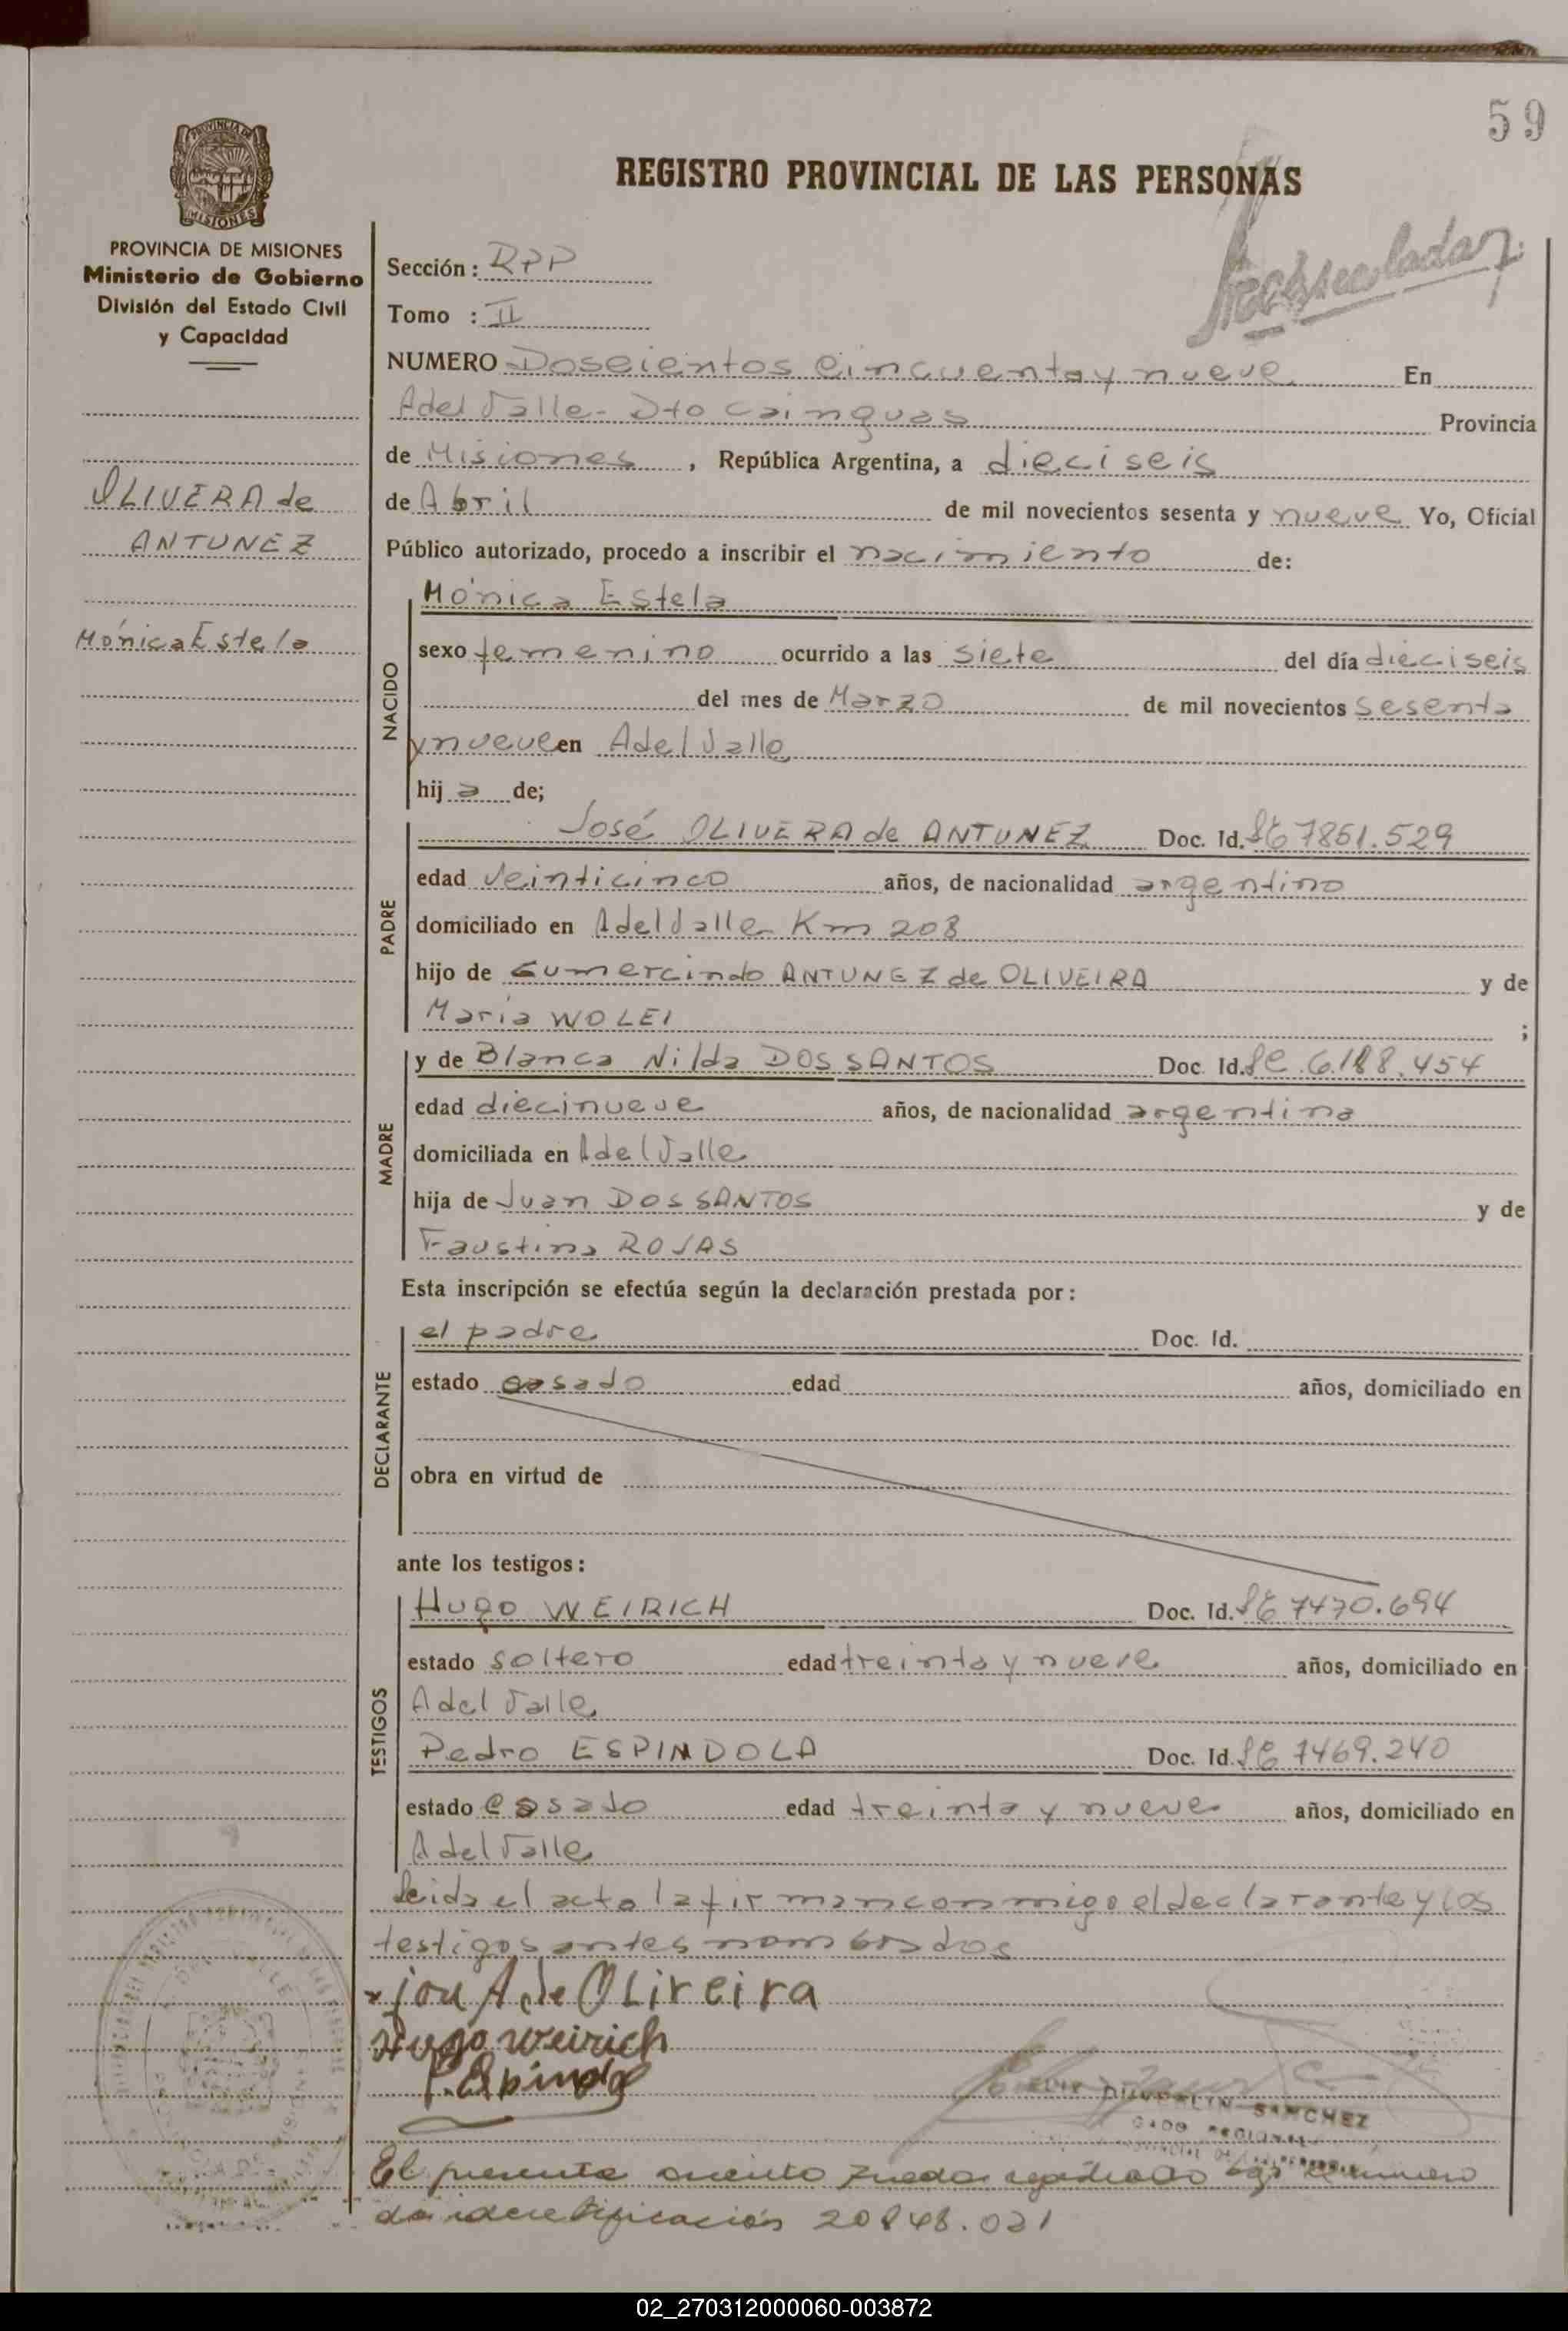 59
REGISTRO PROVINCIAL DE LAS PERSONAS
PROVINCIA DE MISIONES
Ministerio de Gobierno
División del Estado Civil
y Capacidad
OLIVERA de
ANTUNEZ
Mónica Estela
Sección: RPP
Tomo : II
NUMERO Doscientos cincuenta y nueve En
A del Valle - Dto Cainguas Provincia
de Misiones, República Argentina, a dieciseis
de Abril de mil novecientos sesenta y nueve Yo, Oficial
Público autorizado, procedo a inscribir el nacimiento de:
NACIDO
Mónica Estela
sexo femenino ocurrido a las siete del día dieciseis
del mes de Marzo de mil novecientos sesenta
y nueve en A del Valle
hija de;
PADRE
José OLIVERA de ANTUNEZ Doc. Id. 7851.529
edad veinticinco años, de nacionalidad argentino
domiciliado en A del Valle Km 208
hijo de Gumercindo ANTUNEZ de OLIVEIRA y de
María WOLEI ;
MADRE
y de Blanca Nilda DOS SANTOS Doc. Id. 6.188.454
edad diecinueve años, de nacionalidad argentina
domiciliada en A del Valle
hija de Juan DOS SANTOS y de
Faustina ROJAS
Esta inscripción se efectúa según la declaración prestada por:
DECLARANTE
el padre Doc. Id.
estado casado edad años, domiciliado en
obra en virtud de
ante los testigos:
TESTIGOS
Hugo WEIRICH Doc. Id. 7470.694
estado soltero edad treinta y nueve años, domiciliado en
A del Valle
Pedro ESPINDOLA Doc. Id. 7469.240
estado casado edad treinta y nueve años, domiciliado en
A del Valle
Leida el acta la firman conmigo el declarante y los
testigos antes nombrados
A de OLiveira
Hugo Weirich
P. Espindola
SANCHEZ
El presente asiento queda registrado bajo el numero
de identificación 20848.031
02_270312000060-003872